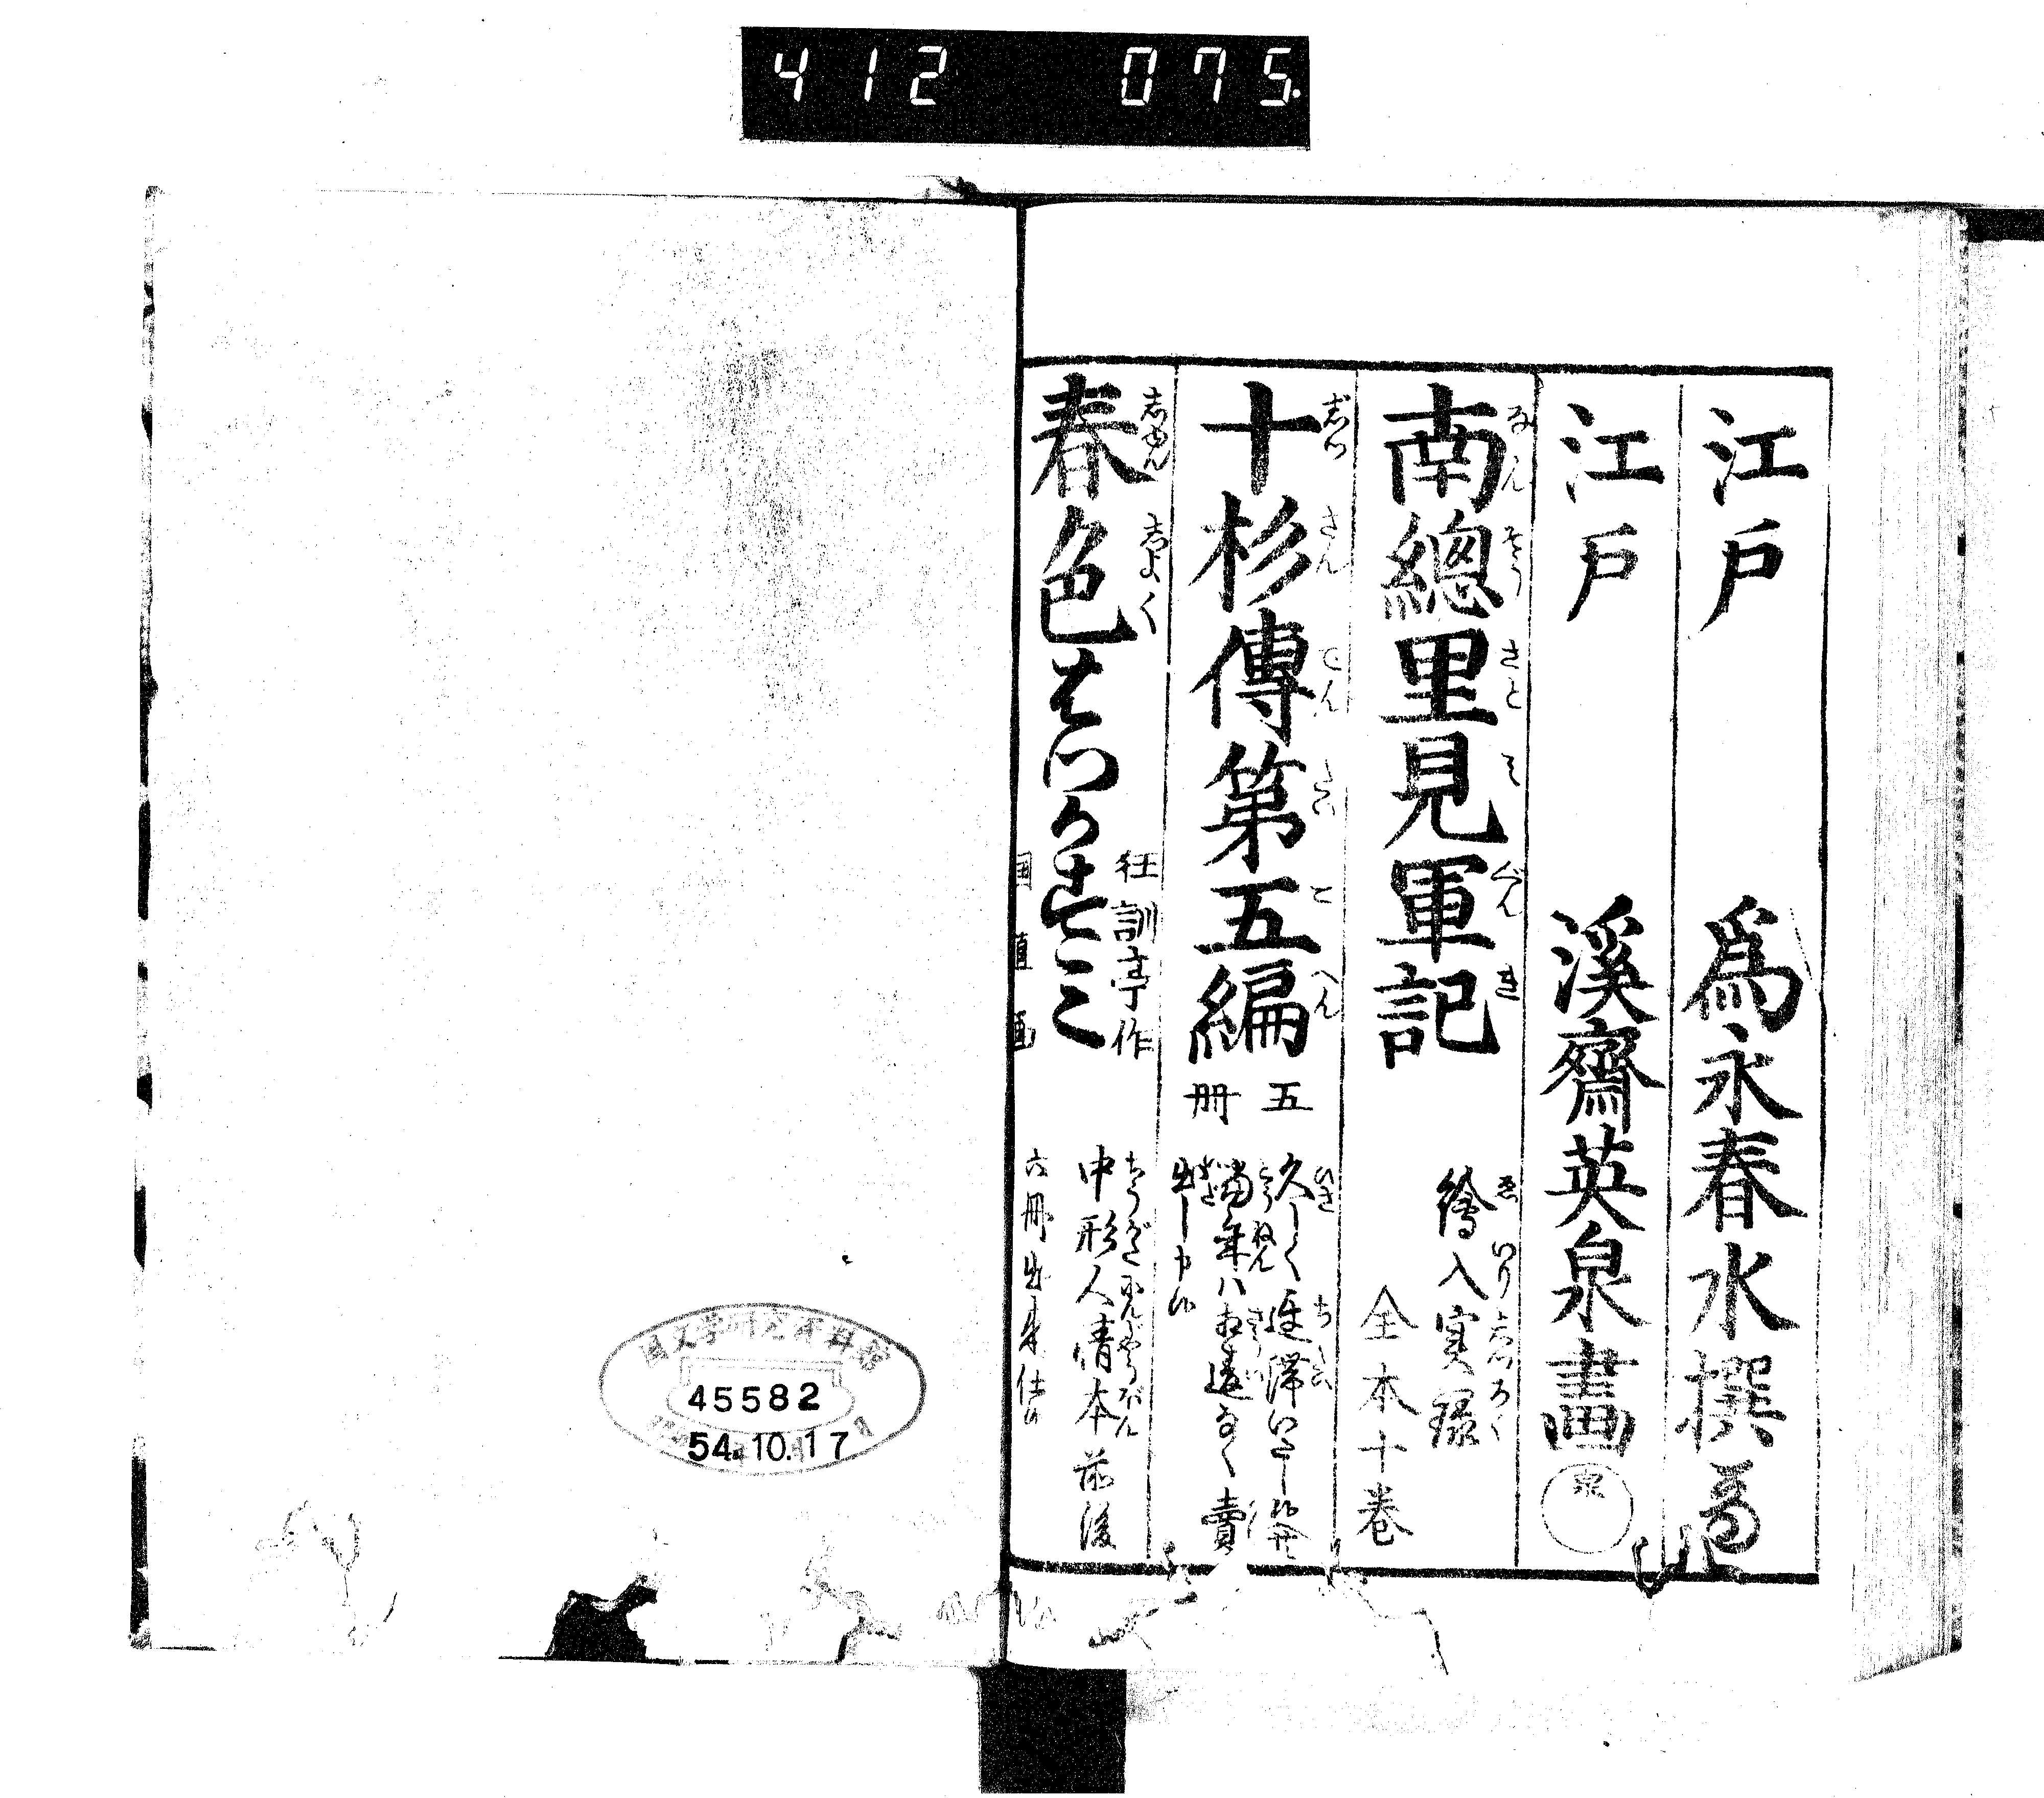 412 075.
江戸 爲永春水撰
江戸 溪齋英泉畫 泉
南總里見軍記 繪入実録
全本十巻
十杉傳第五編 五冊 久しく延滞いたし候
當年ハ相違なく賣
出し申候
春色はつ 狂訓亭作
中形人情本前後
六冊出来仕候
国文学研究資料館
45582
54.10.17